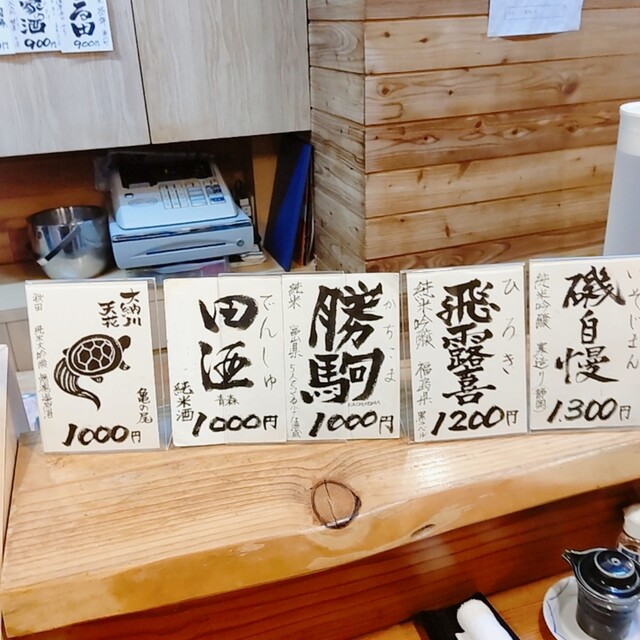 酒
900円
田
900円
大納川
天花
秋田
亀の尾
1000円
田酒
でんしゅ
青森
純米酒
1000円
勝駒
かちこま
純米
富山県
1000円
飛露喜
ひろき
純米吟醸
1200円
磯自慢
いそじまん
純米吟醸
静岡
1.300円